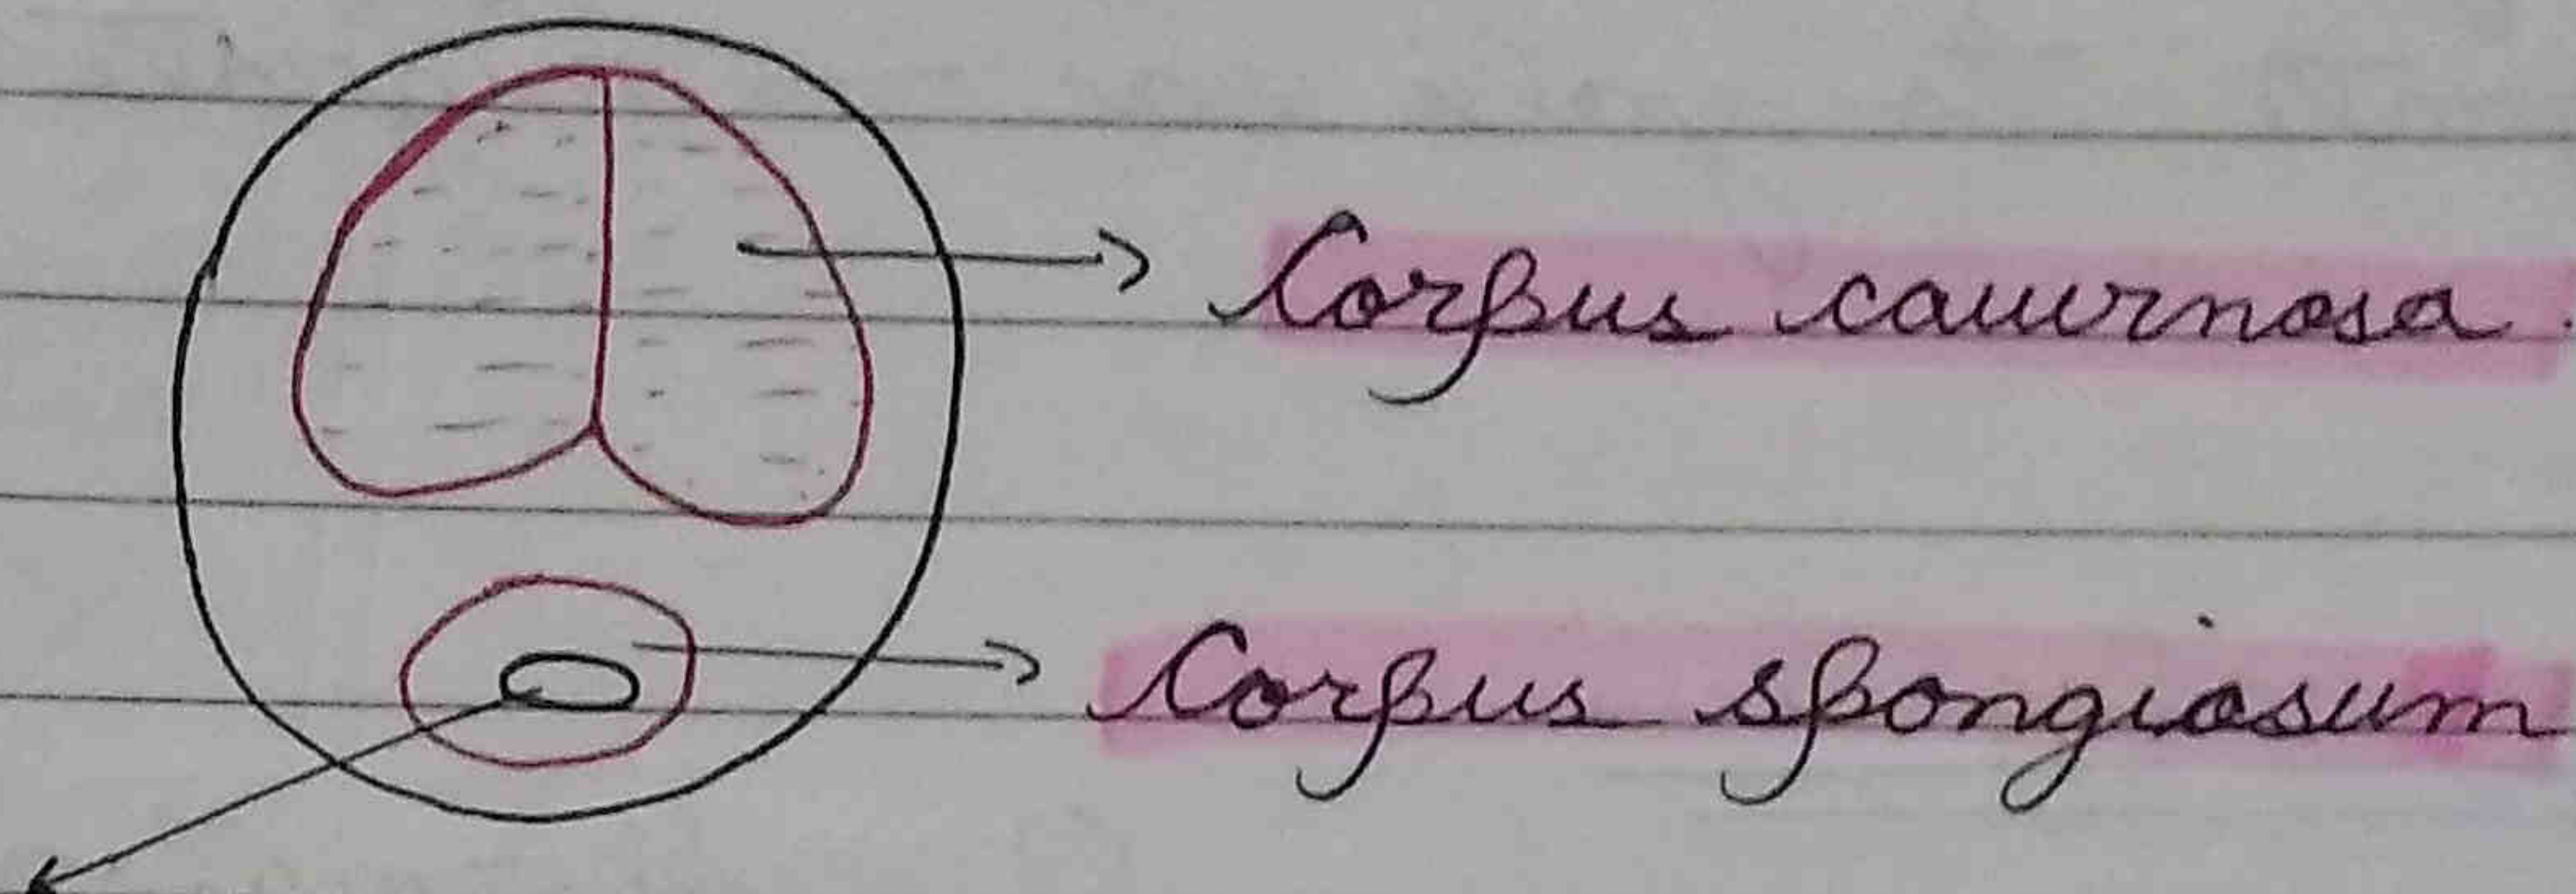 Corpus cavernosa
Corpus spongiosum